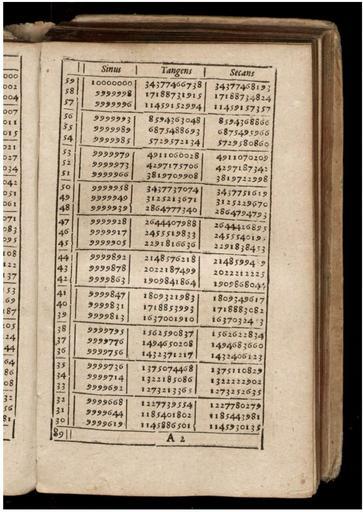 Sinus | Tangens | Secans
59 10000000 34377466738 34377468193
58 9999998 17188731915 17188734824
57 9999996 11459152994 11459157357
56 9999993 8594363048 8594368866
55 9999989 6875488693 6875495966
54 9999985 5729572134 5729580860
53 9999979 4911060028 4911070209
52 9999973 4297175706 4297187342
51 9999966 3819709908 3819722998
50 9999958 3437737074 3437751619
49 9999949 3125213671 3125229670
48 9999939 2864777340 2864794793
47 9999928 2644407988 2644426895
46 9999917 2455519833 2455540195
45 9999905 2291816636 2291838453
44 9999892 2148576218
43 9999878 2022187499 2022212225
42 9999863 1909841864 1909868044
41 9999847 1809321983 1809349617
40 9999831 1718853993 1718883082
39 9999813 1637001910
38 9999795 1562590837 1562622834
37 9999776 1494650208 1494683660
36 9999756 1432371217 1432406123
35 9999736 1375074468 1375110829
34 9999714 1322185086 1322222902
33 9999692 1273213365 1273252635
32 9999668 1227739554 1227780279
31 9999644 1185401802 1185443981
30 9999619 1145886501 1145930135
89 A 2